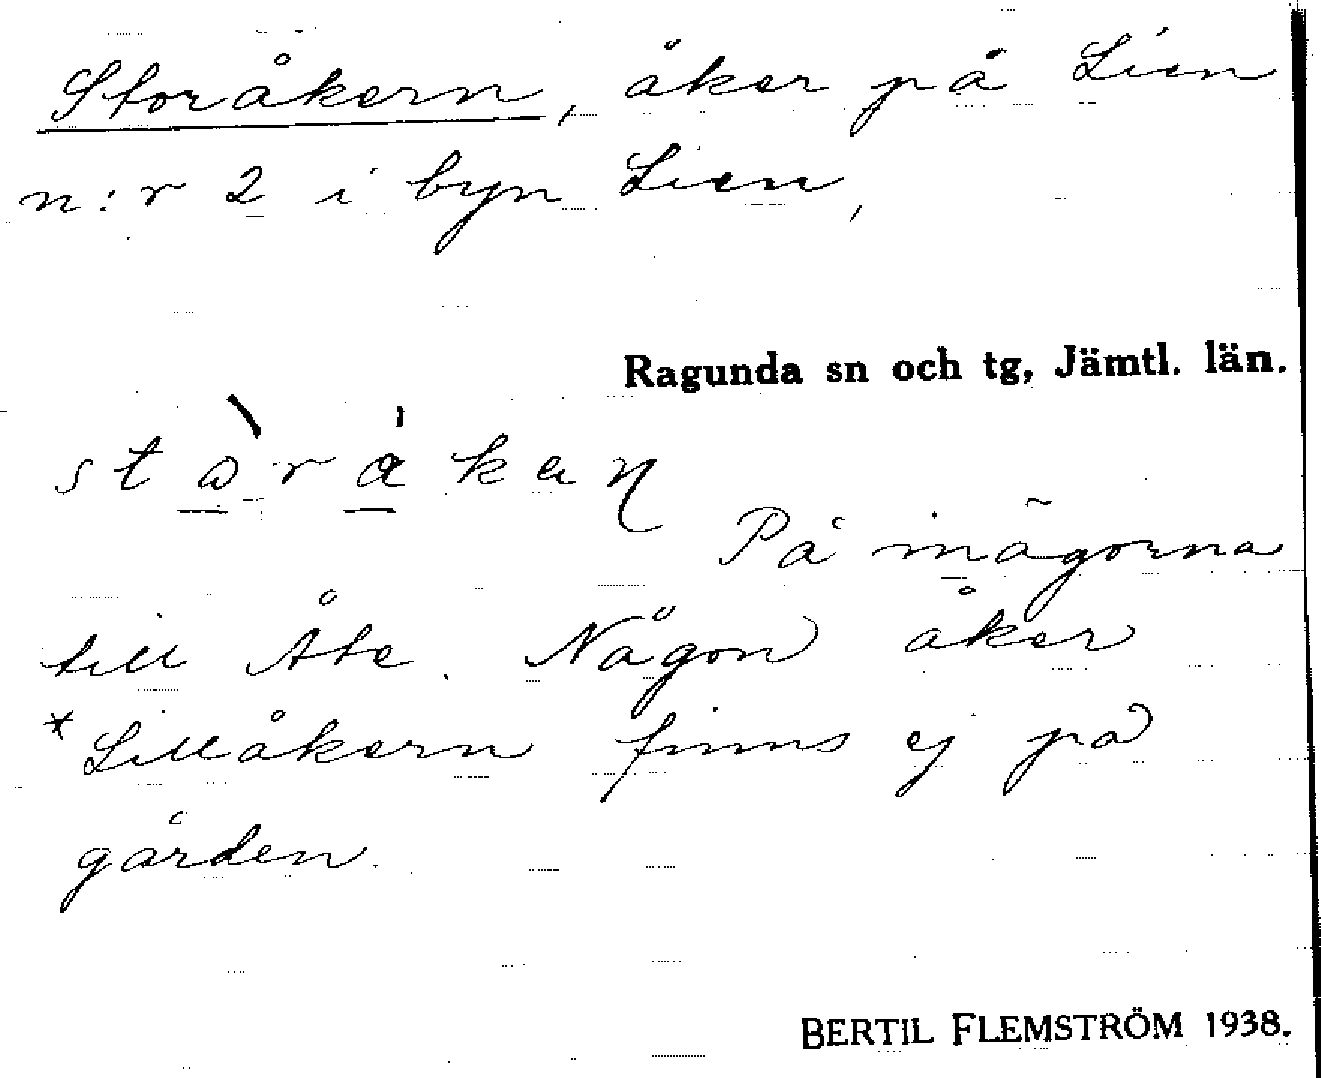 Storåkern, åker på Lien
n:r 2 i byn Lien,
Ragunda sn och tg, Jämtl. län.
På inägorna
till Åte. Någon åker
*Lillåkern finns ej på
gården.
BERTIL FLEMSTRÖM 1938.